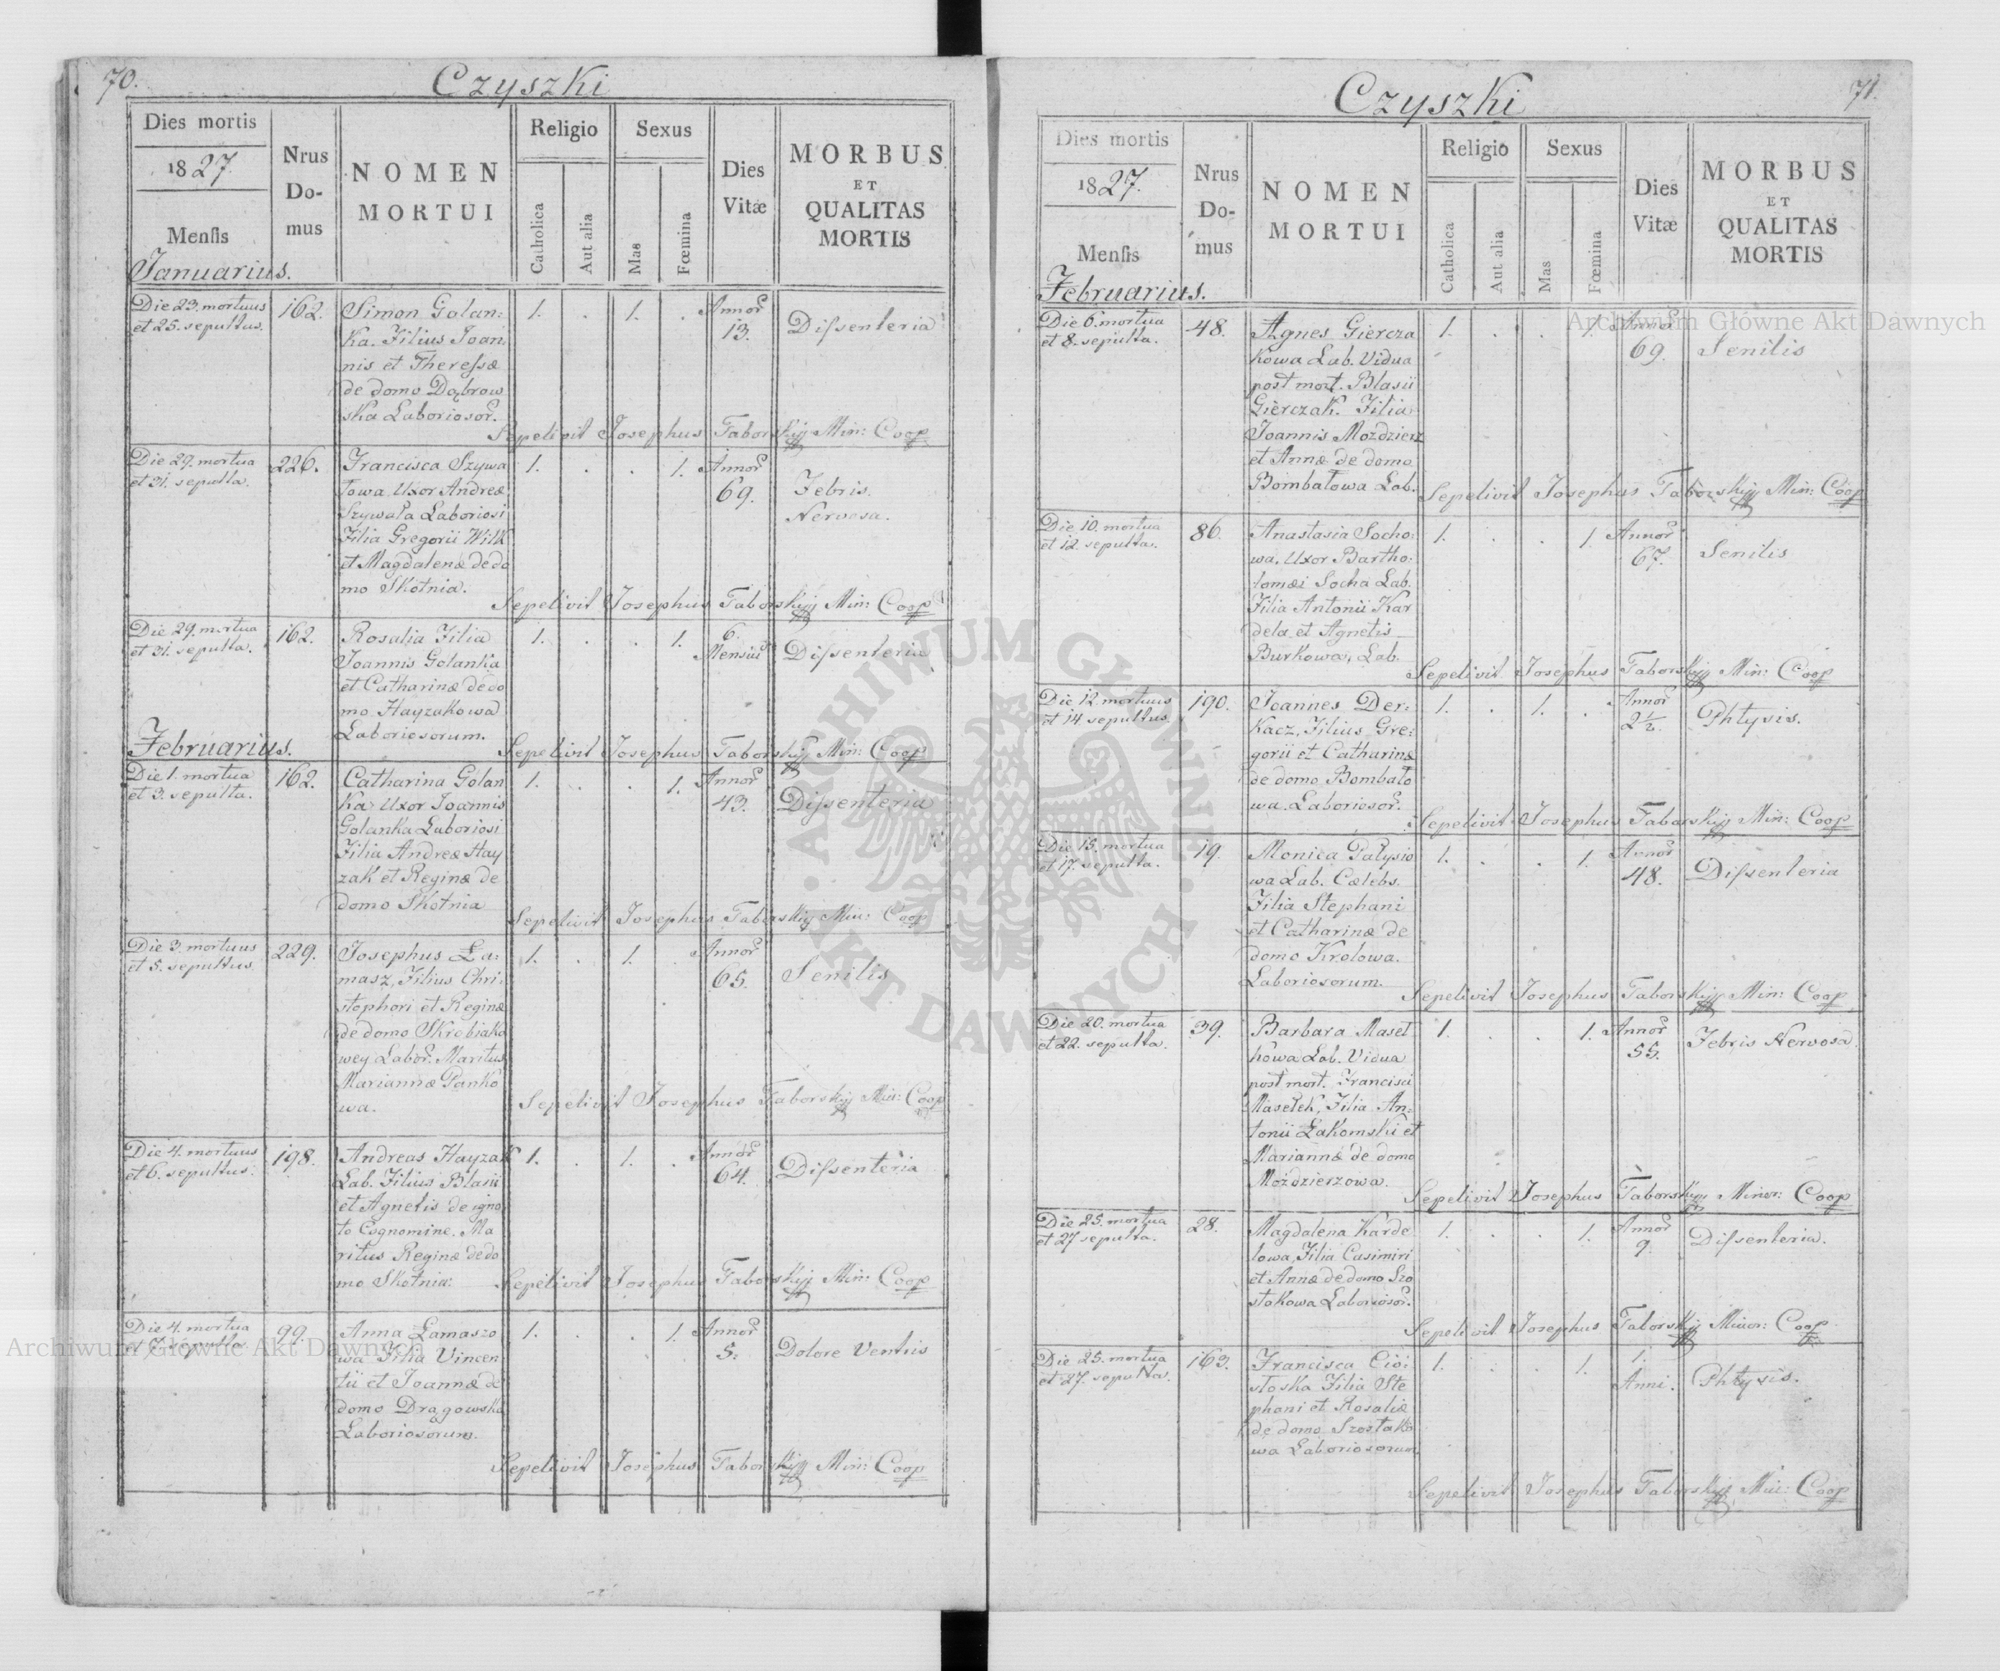 70.
Czyszki
Dies mortis
1827.
Mensis
Nrus
Do-
mus
NOMEN
MORTUI
Religio
Catholica
Aut alia
Sexus
Mas
Fœmina
Dies
Vitæ
MORBUS
ET
QUALITAS
MORTIS
Januarius.
Die 23. mortuus
et 25. sepultus.
162.
Simon Golan-
ka. Filius Joan
nis et Theressæ
de domo Dąbrow
ska Laborioso͞r.
1. . 1. .
Anno͞r
13.
Dissenteria
Sepelivit Josephus Taborskÿ Min: Coop
Die 29. mortua
et 31. sepulta.
226.
Francisca Szywa
łowa Uxor Andreæ
Szywała Laboriosi
Filia Gregorii Wilk
et Magdalenæ de do
mo Skotnia.
1. . . 1.
Anno͞r
69.
Febris.
Nervosa.
Sepelivit Josephus Taborskÿ Min: Coop
Die 29. mortua
et 31. sepulta.
162.
Rosalia Filia
Joannis Golanka
et Catharinæ de do
mo Hayzakowa
Laboriosorum.
1. . . 1.
6.
Mensiu͞
Dissenteria
Sepelivit Josephus Taborskÿ Min: Coop
Februarius.
Die 1. mortua
et 3. sepulta.
162.
Catharina Golan
ka Uxor Joannis
Golanka Laboriosi
Filia Andreæ Hay
zak et Reginæ de
domo Skotnia
1. . . 1.
Anno͞r
43.
Dissenteria
Sepelivit Josephus Taborskÿ Min: Coop
Die 3. mortuus
et 5. sepultus
229.
Josephus Ła-
masz, Filius Chri-
stophori et Reginæ
de domo Skrobiako
wey Labo͞r. Maritus
Mariannæ Panko
wa.
1. . 1. .
Anno͞r
65.
Senilis
Sepelivit Josephus Taborskÿ Min: Coop
Die 4. mortuus
et 6. sepultus.
198.
Andreas Hayzak
Lab. Filius Blasii
et Agnetis de igno
to Cognomine. Ma
ritus Reginæ de do
mo Skotnia.
1. . 1. .
Anno͞r
64.
Dissenteria
Sepelivit Josephus Taborskÿ Min: Coop
Die 4. mortua
et 7. sepulta.
99.
Anna Łamaszo
wa Filia Vincen
tii et Joannæ de
domo Dragowska
Laboriosorum.
1. . . 1.
Anno͞r
5.
Dolore Ventris
Sepelivit Josephus Taborskÿ Min: Coop
71.
Czyszki
Dies mortis
1827.
Mensis
Nrus
Do-
mus
NOMEN
MORTUI
Religio
Catholica
Aut alia
Sexus
Mas
Fœmina
Dies
Vitæ
MORBUS
ET
QUALITAS
MORTIS
Februarius.
Die 6. mortua
et 8. sepulta.
48.
Agnes Giercza
kowa Lab. Vidua
post mort. Blasii
Gierczak. Filia
Joannis Mozdzierz
et Annæ de domo
Bombałowa Lab.
1. . . 1.
Anno͞r
69.
Senilis
Sepelivit Josephus Taborskÿ Min: Coop
Die 10. mortua
et 12. sepulta.
86.
Anastasia Socho-
wa, Uxor Bartho-
lomæi Socha Lab.
Filia Antonii Kar
dela et Agnetis
Burkowa, Lab.
1. . . 1.
Anno͞r
67.
Senilis
Sepelivit Josephus Taborskÿ Min: Coop
Die 12. mortuus
et 14. sepultus
190.
Joannes Der-
kacz, Filius Gre-
gorii et Catharinæ
de domo Bombało
wa. Laborioso͞r.
1. . 1. .
Anno͞r
2 1/2.
Phtysis.
Sepelivit Josephus Taborskÿ Min: Coop
Die 15. mortua
et 17. sepulta.
19.
Monica Pałysio
wa Lab. Cælebs.
Filia Stephani
et Catharinæ de
domo Krolowa.
Laboriosorum.
1. . . 1.
Anno͞r
48.
Dissenteria
Sepelivit Josephus Taborskÿ Min: Coop
Die 20. mortua
et 22. sepulta.
39.
Barbara Maseł
kowa Lab. Vidua
post mort. Francisci
Masełek, Filia An-
tonii Łakomski et
Mariannæ de domo
Możdzierzowa.
1. . . 1.
Anno͞r
55.
Febris Nervosa.
Sepelivit Josephus Taborskÿ Minor: Coop
Die 25. mortua
et 27 sepulta.
28.
Magdalena Karde
lowa, Filia Casimiri
et Annæ de domo Szo
stakowa Laborioso͞r.
1. . . 1.
Anno͞r
9.
Dissenteria.
Sepelivit Josephus Taborskÿ Minor: Coop
Die 25. mortua
et 27. sepulta.
163.
Francisca Cioi-
stoska Filia Ste
phani et Rosaliæ
de domo Szostako
wa Laboriosorum
1. . . 1.
1.
Anni.
Phtysis.
Sepelivit Josephus Taborskÿ Min: Coop
Archiwum Główne Akt Dawnych
Archiwum Główne Akt Dawnych
ARCHIWUM GŁÓWNE · AKT DAWNYCH ·